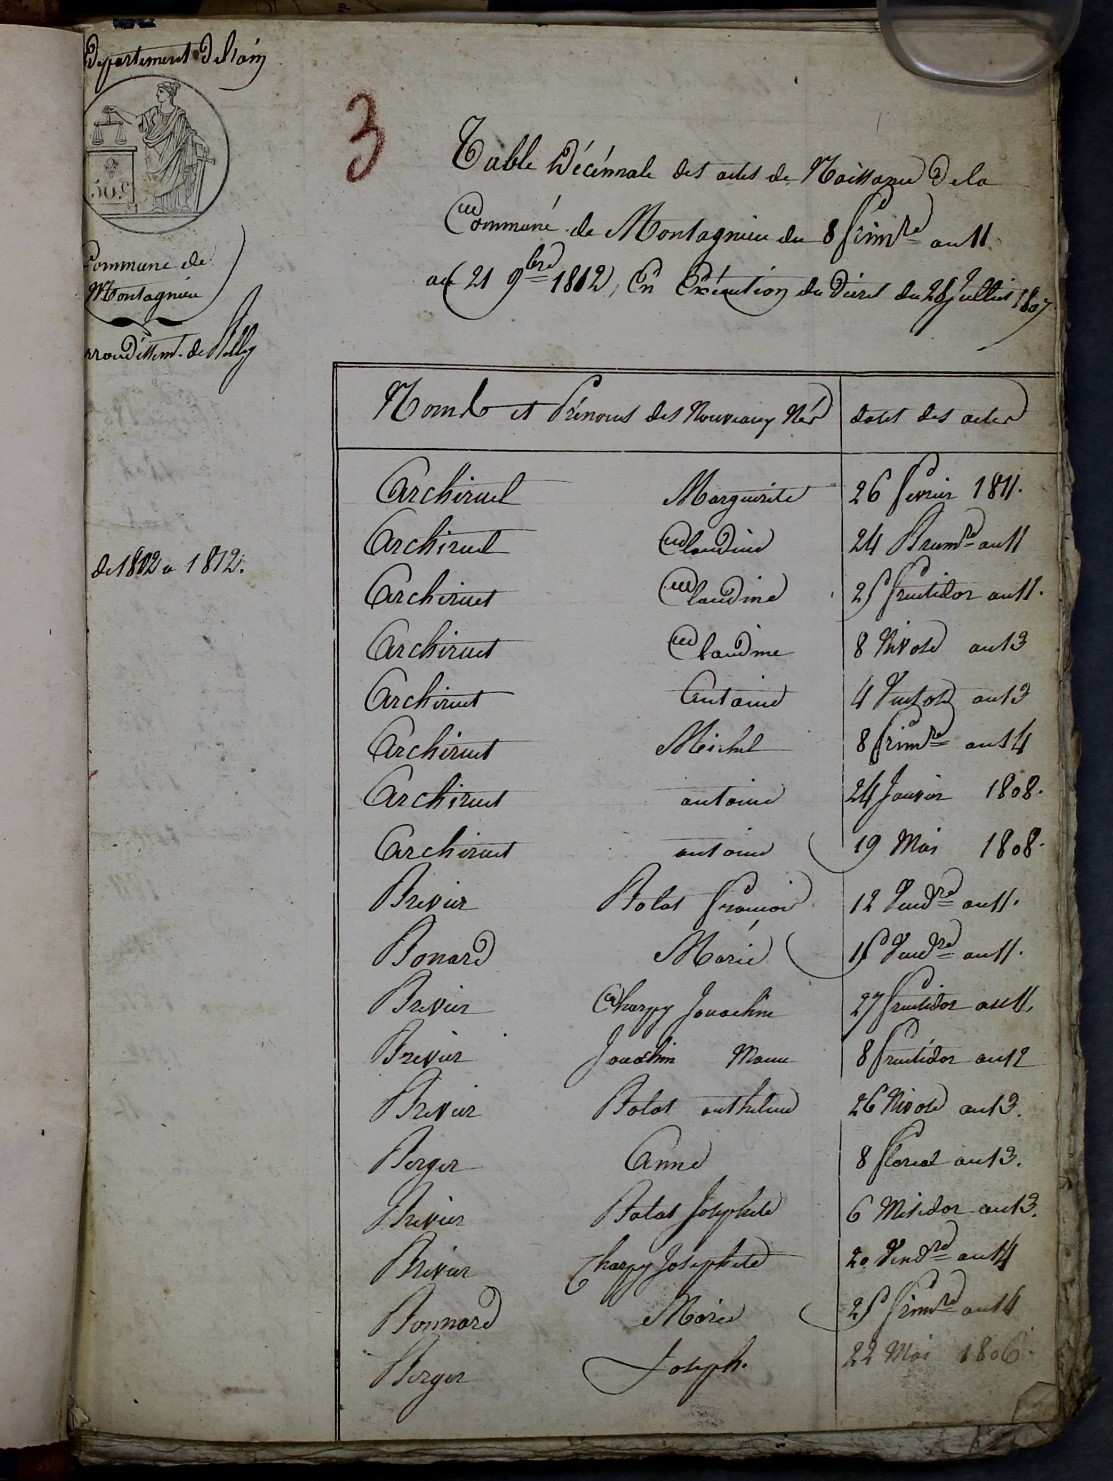 Département de l'ain
50 c
Commune de
Montagnieu
arrondissemt. de Belley
de 1802 a 1812.
3
Table Décénnale des actes de Naissance de la
Commune de Montagnieu du 8 frimre an 11
au 21 9bre 1812, En Exécution du Décret du 20 Juillet 1807
Noms et Prénoms des Nouveaux Nés dates des actes
Archiruel Marguerite 26 fevrier 1811.
Archiruel Claudine 24 Brumre an 11
Archiruet Claudine 25 fructidor an 11.
Archiruet Claudine 8 Nivose an 13
Archiruet Antoine 4 Ventose an 13
Archiruet Michel 8 frimre an 14
Archiruet antoine 24 Janvier 1808.
Archiruet antoine 19 Mai 1808.
Brevier Bolat francois 12 Vendre an 11.
Bonard Marie 15 Vendre an 11.
Brevier Charpy Jouachim 27 fructidor an 11.
Brevier Jouachim 8 fructidor an 12
Brevier Bolat anthelme 26 Nivose an 13.
Berger Anne 8 floreal an 13.
Brevier Bolat Josephete 6 Mesidor an 13.
Brevier Charpy Josephete 20 Vendre an 14
Bonnard Marie 25 frimre an 14
Berger Joseph. 22 Mai 1806.